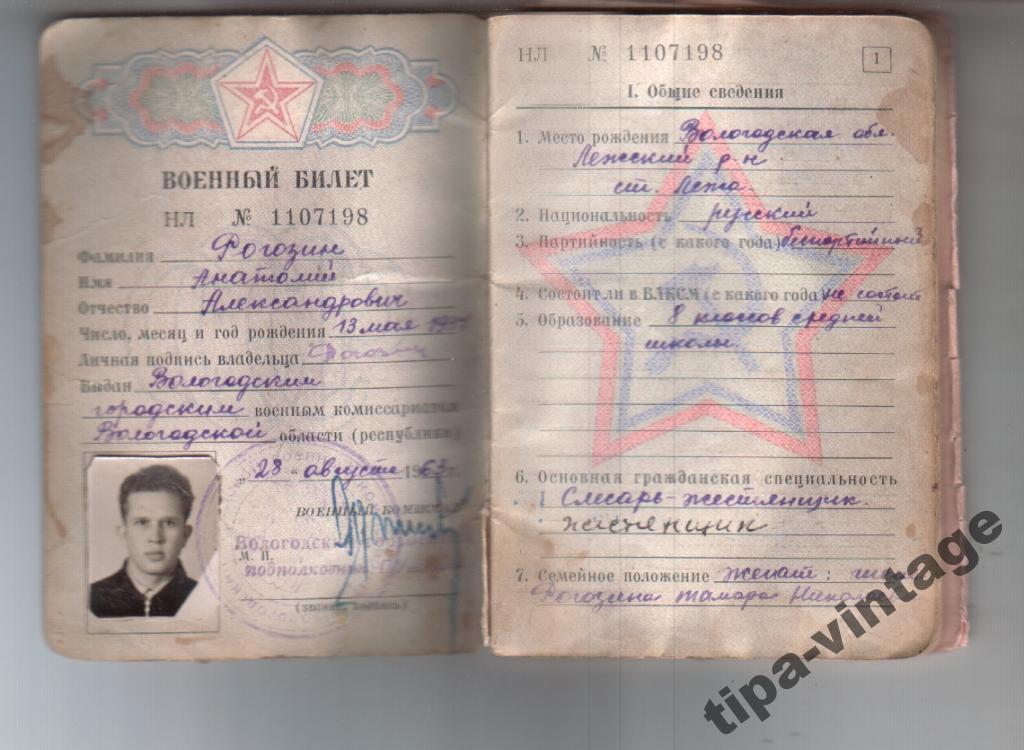 ВОЕННЫЙ БИЛЕТ
НЛ № 1107198
Фамилия Рогозин
Имя Анатолий
Отчество Александрович
Число, месяц и год рождения 13 мая
Личная подпись владельца Рогозин
Выдан Вологодским
городским военным комиссариатом
Вологодской области (республики)
„28 „ августа 1963 г.
ВОЕННЫЙ
Вологодск
М. П.
подполковник
НЛ № 1107198
1
I. Общие сведения
1. Место рождения Вологодская обл.
Лежский р-н
ст. Лежа
2. Национальность русский
3. Партийность (с какого года) беспартийный
4. Состоит ли в ВЛКСМ (с какого года) не состоит
5. Образование 8 классов средней
школы.
6. Основная гражданская специальность
Слесарь-жестянщик.
жестянщик
7. Семейное положение женат:
Рогозина Тамара
tipa-vintage